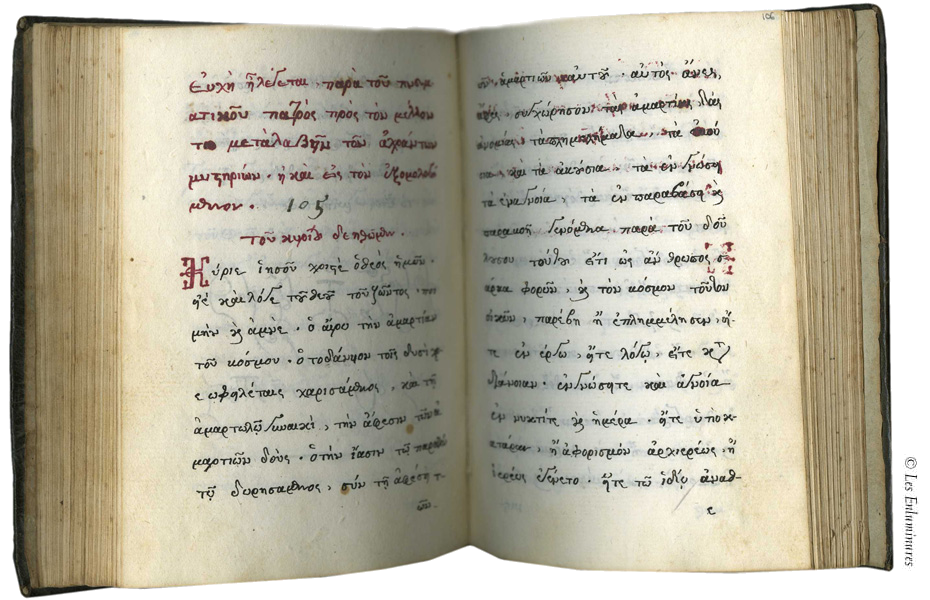 Εὐχὴ ἣ λέγεται παρὰ τοῦ πνευμ
ατικοῦ πατρὸς πρὸς τὸν μέλλον
τα μεταλαβεῖν τῶν ἀχράντων
μυστηρίων · ἢ καὶ εἰς τὸν ἐξομολογού
μενον ·
105
τοῦ κυρίου δεηθῶμεν ·
Κύριε ἰησοῦ χριστὲ ὁ θεὸς ἡμῶν ·
υἱὲ καὶ λόγε τοῦ θεοῦ τοῦ ζῶντος · ποι
μὴν καὶ ἀμνὲ · ὁ αἴρων τὴν ἁμαρτίαν
τοῦ κόσμου · ὁ τὸ δάνειον τοῖς δυσὶ χρ
εωφηλέταις χαρισάμενος, καὶ τῇ
ἁμαρτωλῷ γυναικὶ, τὴν ἄφεσιν τῶν ἁ
μαρτιῶν δοὺς · ὁ τὴν ἴασιν τῷ παραλύ
τῳ δωρησάμενος, σὺν τῇ ἀφέσει τ
ῶν ·
106
ῶν ἁμαρτιῶν αὐτοῦ · αὐτὸς ἄνες,
ἄφες, συγχώρησον τὰς ἁμαρτίας, τὰς
ἀνομίας, τὰ πλημμελήματα, τὰ ἑκού
σια, καὶ τὰ ἀκούσια, τὰ ἐν γνώσει
τὰ ἐν ἀγνοία, τὰ ἐν παραβάσει καὶ
παρακοῇ γενόμενα παρὰ τοῦ δού
λου σου τούτου ἔτι ὡς ἄνθρωπος σ
άρκα φορῶν, καὶ τὸν κόσμον τοῦτον
οἰκῶν, παρέβη ἢ ἐπλημμέλησεν, εἴ
τε ἐν ἔργω, εἴτε λόγω, εἴτε κατὰ
διάνοιαν · ἐν γνώσει τε καὶ ἀγνοία
ἐν νυκτί τε καὶ ἡμέρα · εἴτε ὑπὸ κ
ατάραν, ἢ ἀφορισμὸν ἀρχιερέως, ἢ
ἱερέως ἐγένετο · εἴτε τῶ ἰδίῳ ἀναθ
ε
© Les Enluminures